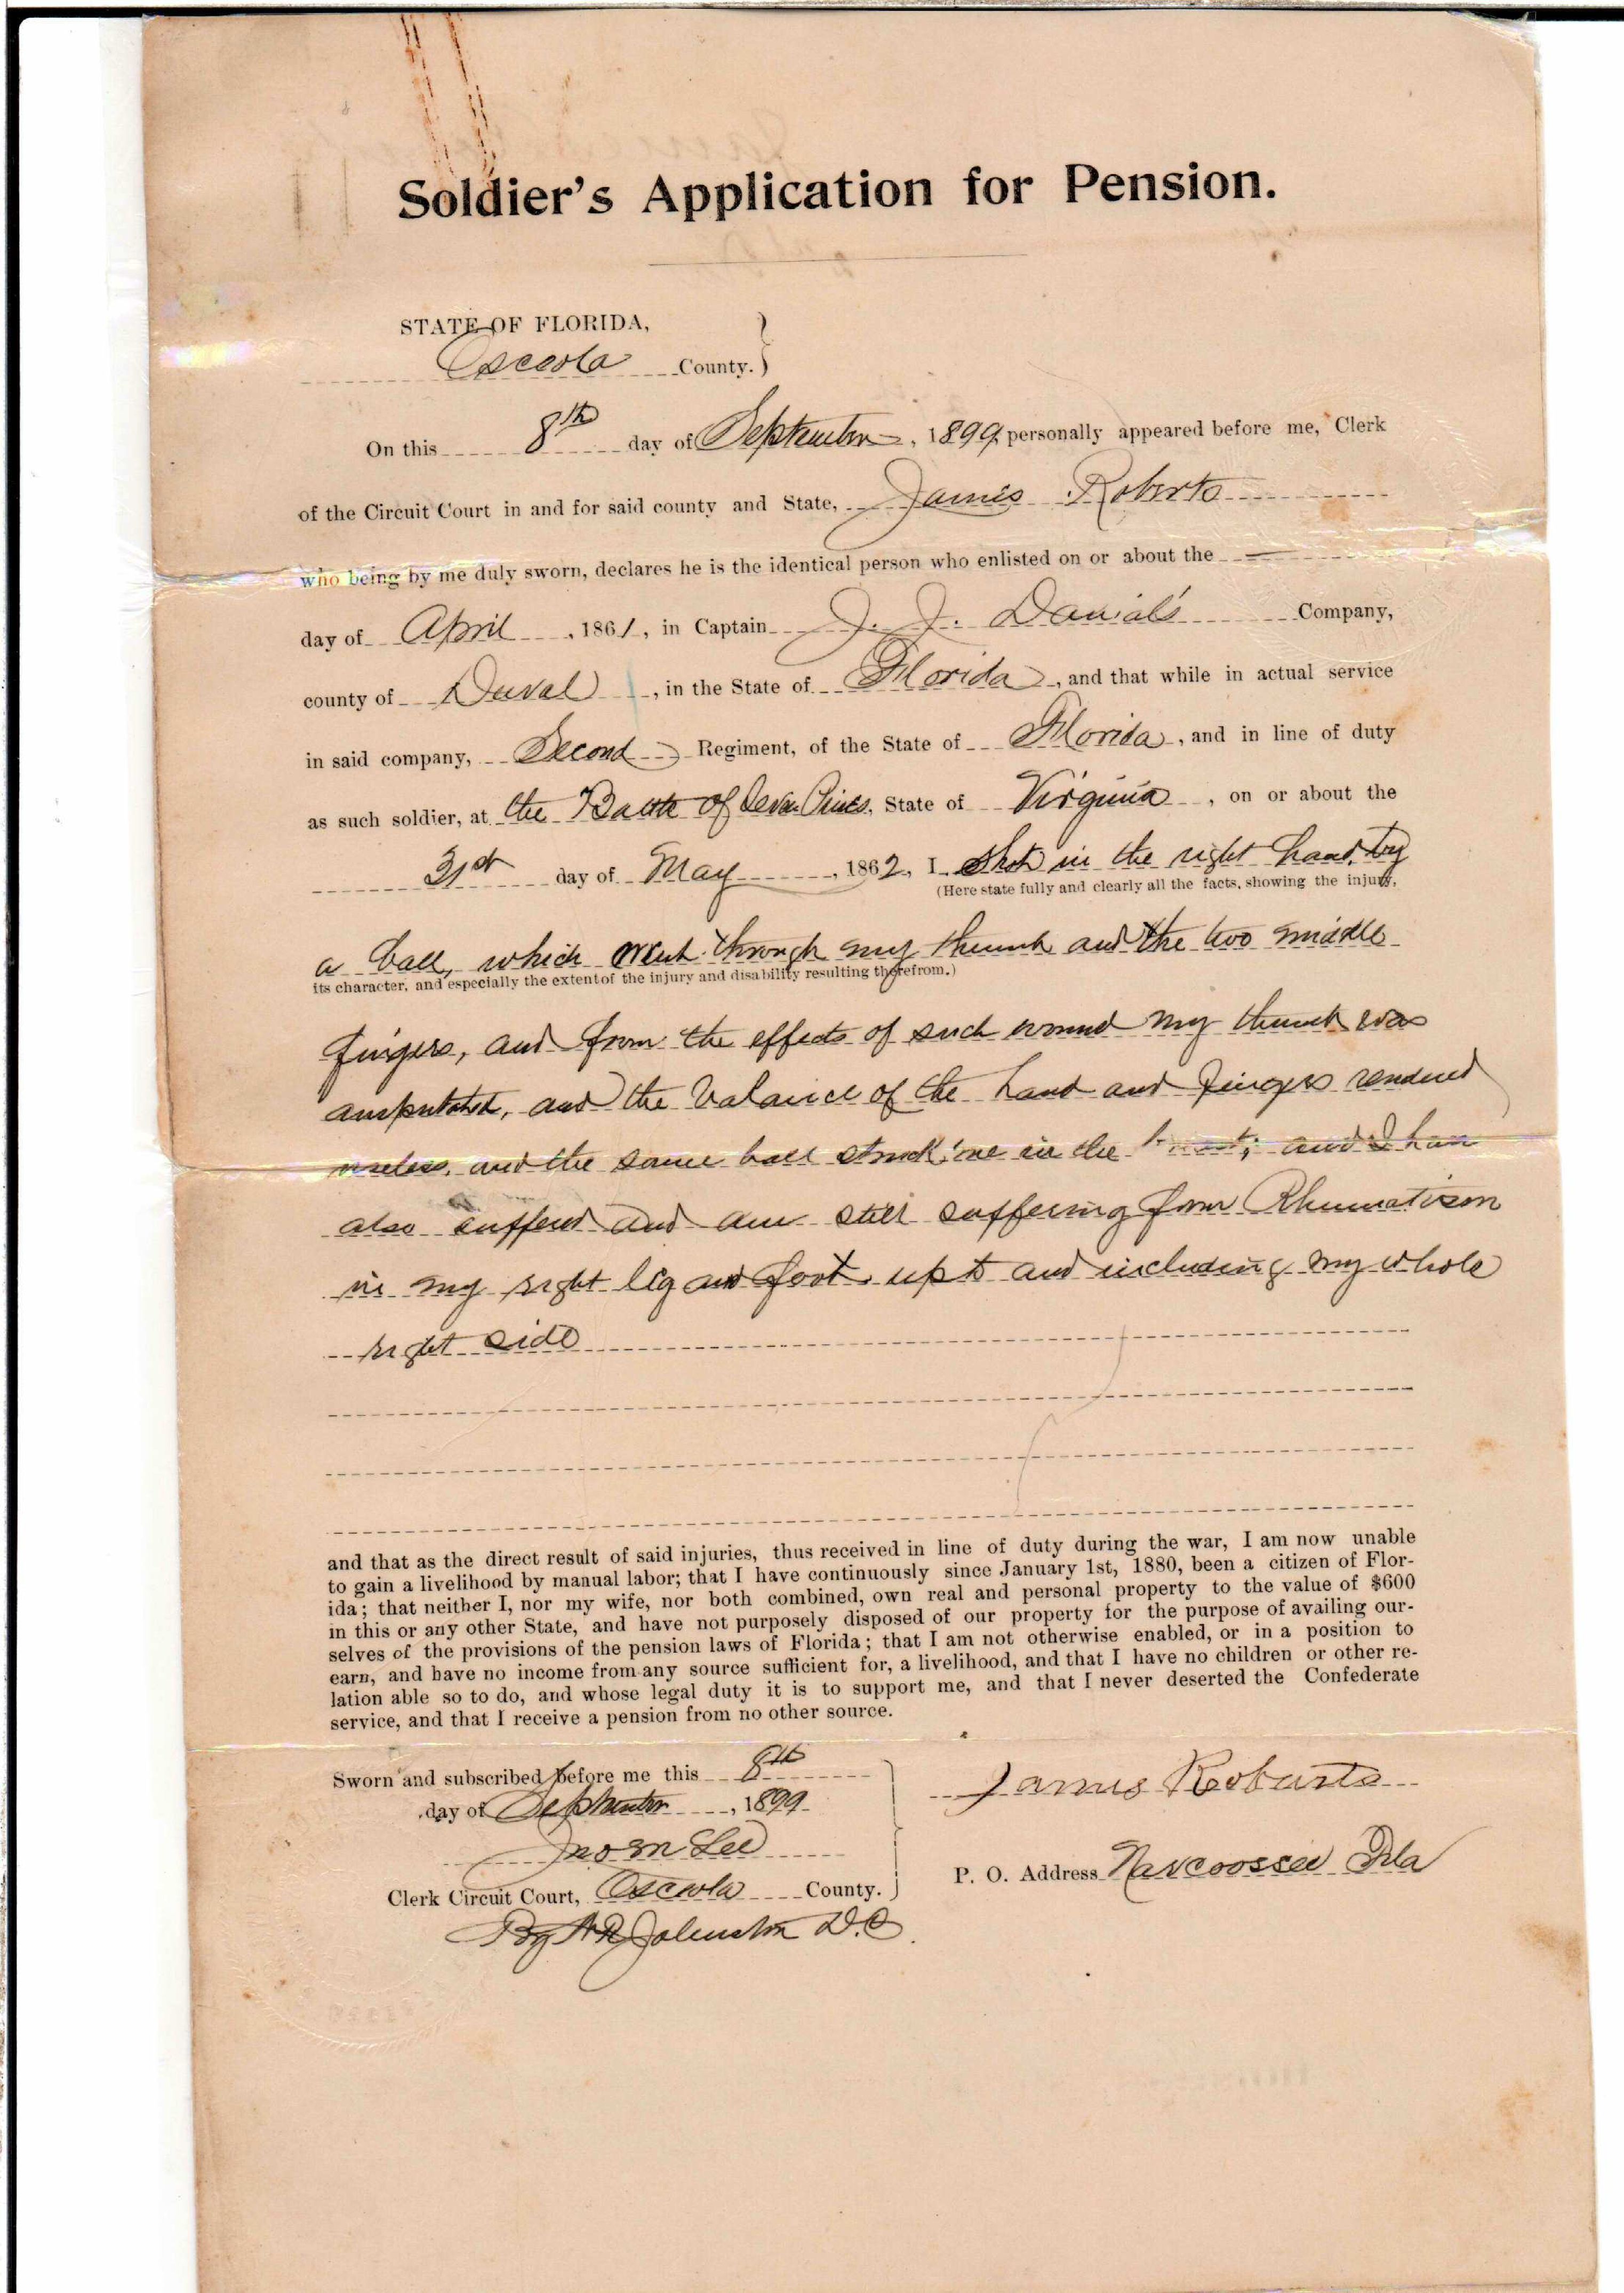 Soldier's Application for Pension.
STATE OF FLORIDA,
Osceola County.
On this 8th day of September, 1899, personally appeared before me, Clerk
of the Circuit Court in and for said county and State, James Roberts
who being by me duly sworn, declares he is the identical person who enlisted on or about the —
day of April, 1861, in Captain J. J. Danial's Company,
county of Duval, in the State of Florida, and that while in actual service
in said company, Second Regiment, of the State of Florida, and in line of duty
as such soldier, at the Battle of Seven Pines, State of Virginia, on or about the
31st day of May, 1862, I shot in the right hand, by
(Here state fully and clearly all the facts, showing the injury,
a ball, which went through my thumb and the two middle
its character, and especially the extent of the injury and disability resulting therefrom.)
fingers, and from the effects of such wound my thumb was
amputated, and the balance of the hand and fingers rendered
useless, and the same ball struck me in the and I have
also suffered and am still suffering from Rhumatism
in my right leg and foot, up to and including my whole
right side
and that as the direct result of said injuries, thus received in line of duty during the war, I am now unable
to gain a livelihood by manual labor; that I have continuously since January 1st, 1880, been a citizen of Flor-
ida; that neither I, nor my wife, nor both combined, own real and personal property to the value of $600
in this or any other State, and have not purposely disposed of our property for the purpose of availing our-
selves of the provisions of the pension laws of Florida; that I am not otherwise enabled, or in a position to
earn, and have no income from any source sufficient for, a livelihood, and that I have no children or other re-
lation able so to do, and whose legal duty it is to support me, and that I never deserted the Confederate
service, and that I receive a pension from no other source.
Sworn and subscribed before me this 8th
day of September, 1899
James Roberts
Jno M Lee
P. O. Address Narcoossee Fla
Clerk Circuit Court, Osceola County.
By A R Johnston D.C.